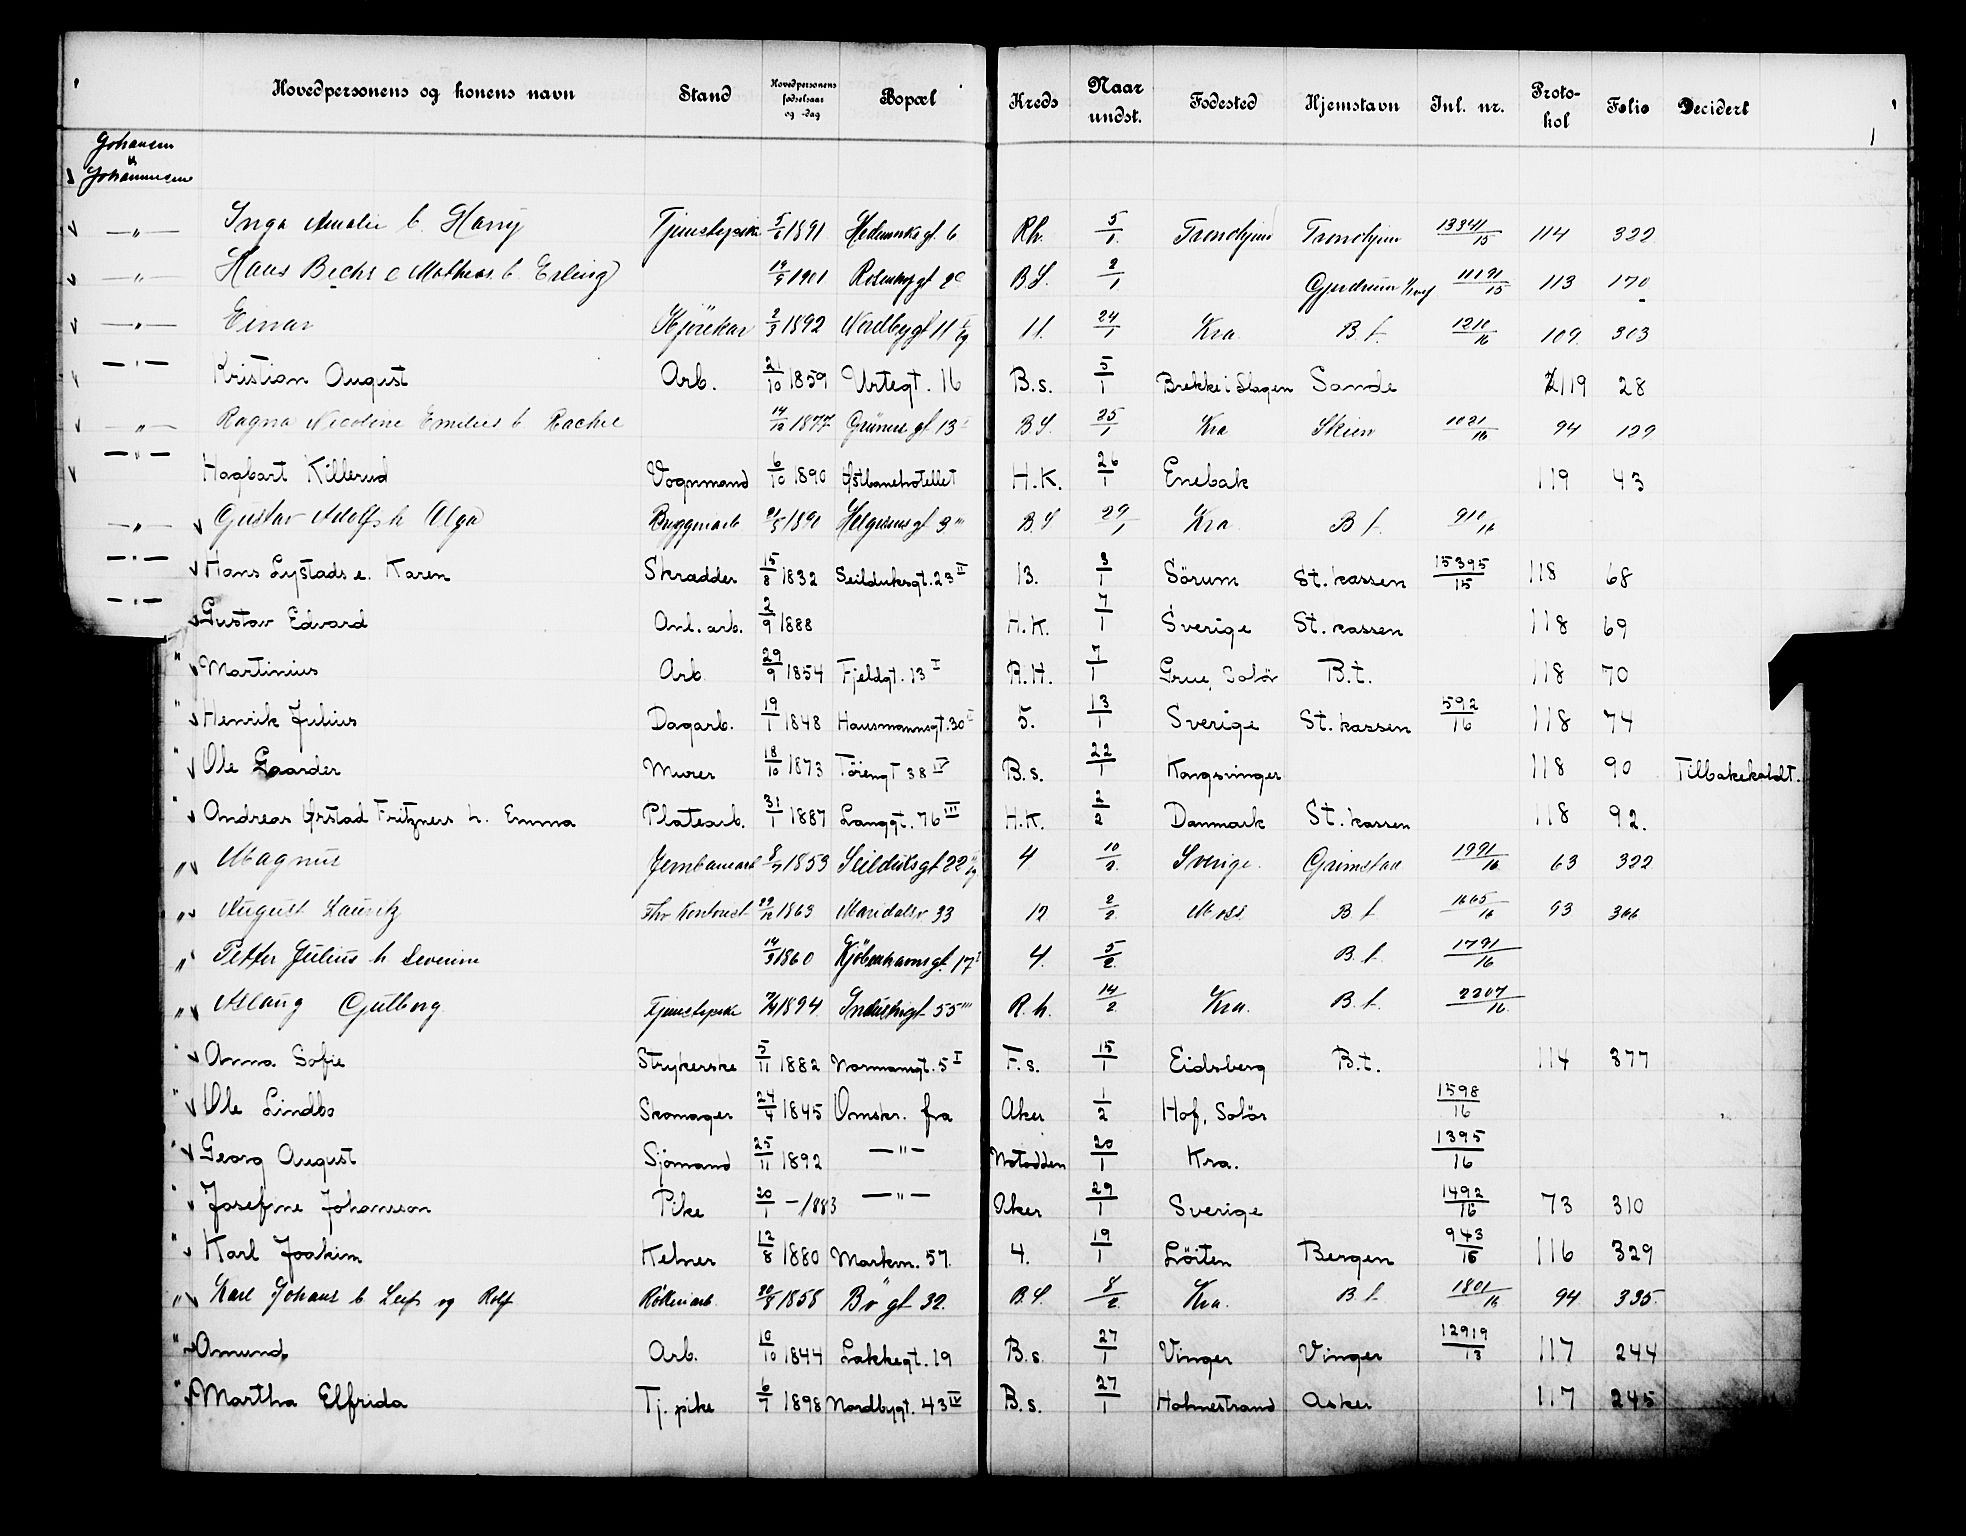 Hovedpersonens og konens navn Stand Hovedpersonens fødselsaar og -dag Bopæl Kreds Naar undst. Fødested Hjemstavn Inl. nr. Protokol Folio Decidert
Johansen
&
Johannesen
—"— Inga Amalie b. Harry Tjenestepike 5/6 1891 Hedemarks gt. 6 Rh. 5/1 Trondhjem Trondhjem 13341/15 114 322
—"— Hans Bechs e Mathea b. Erling 1901 Rosenborg gt 2 B.S. 2/1 Gjerdrum 11191/15 113 170
—"— Einar Kjörekar 2/3 1892 Nordbygt 11 11. 24/1 Kra. B.t. 1210/16 109. 303
—"— Kristian August Arb. 21/10 1859 Urtegt. 16 B.s. 5/1 Brekke i Slagen Sande 119 28
—"— Ragna Nicoline Emilies b Rachel 14/12 1877 Grüners gt 13 B.S. 25/1 Kra Skien 1021/16 94 129
—"— Hagbart Killerud Vognmand 6/10 1890 Østbanehotellet H.K. 26/1 Enebak 119 43
—"— Gustav Adolfs h Olga Bryggeriarb 21/5 1891 Helgesens gt 3 III B.S 29/1 Kra. B t. 910/16
—"— Hans Lystads e. Karen Skrædder 15/8 1832 Seilduksgt. 23 II 13. 3/1 Sörum St. kassen 15395/15 118 68
—"— Gustav Edvard Anl. arb. 2/9 1888 H.K. 7/1 Sverige St. kassen 118 69
" Martinius Arb. 29/9 1854 Fjeldgt. 13 I R.H. 7/1 Grue, Solör B.t. 118 70
" Henrik Julius Dagarb. 19/1 1848 Hausmannsgt. 30 I 5. 13/1 Sverige St. kassen 592/16 118 74
" Ole Gaarder Murer 18/10 1873 Töiengt 38 IV B.s. 22/1 Kongsvinger 118 90 Tilbakekaldt.
" Andreas Ørstad Fritzners h. Emma Platearb. 31/1 1887 Langgt. 76 III H.K. 2/2 Danmark St. kassen 118 92.
" Magnus Jernbanearb 8/7 1853 Seilduksgt 22 4 10/2. Sverige. Grimstad 1991/16 63 322
" August Lauritz Fhv Kontorist 29/12 1863 Maridalsv 33 12 2/2. Moss B t 1665/16 93 366
" Petter Julius h Severine 14/3 1860 Kjöbenhavnsgt. 17 I 4. 5/2. B. t. 1791/16
" Aslaug Gutborg Tjenestepike 1894 Industrigt 55 III R.h. 14/2 Kra. B. t. 2207/16
" Anna Sofie Strykerske 5/11 1882 Normannsgt. 5 I F.s. 15/1 Eidsberg B.t. 114 377
" Ole Lindbo Skomager 24/4 1845 Omskr. fra Aker 1/2 Hof, Solör 1598/16
" Georg August Sjömand 25/11 1892 —"— Notodden 20/1 Kra. 1395/16
" Josefine Johansson Pike 20/1 — 1883 —"— Aker 29/1 Sverige 1492/16 73 310
" Karl Joakim Kelner 12/8 1880 Markvn. 57. 4. 19/1 Löiten Bergen 943/16 116 329
" Karl Johans b. Leif og Rolf Rökeriarb 20/8 1858 Bö gt 32. B.S. 8/2. Kra. B t. 1801/16 94 335.
" Amund. Arb. 10/10 1844 Lakkegt. 19 B.s. 27/1 Vinger Vinger 12919/13 117 244
" Martha Elfrida Tj. pike 6/7 1898 Nordbygt. 43 IV B.s. 27/1 Holmestrand Asker 117 245